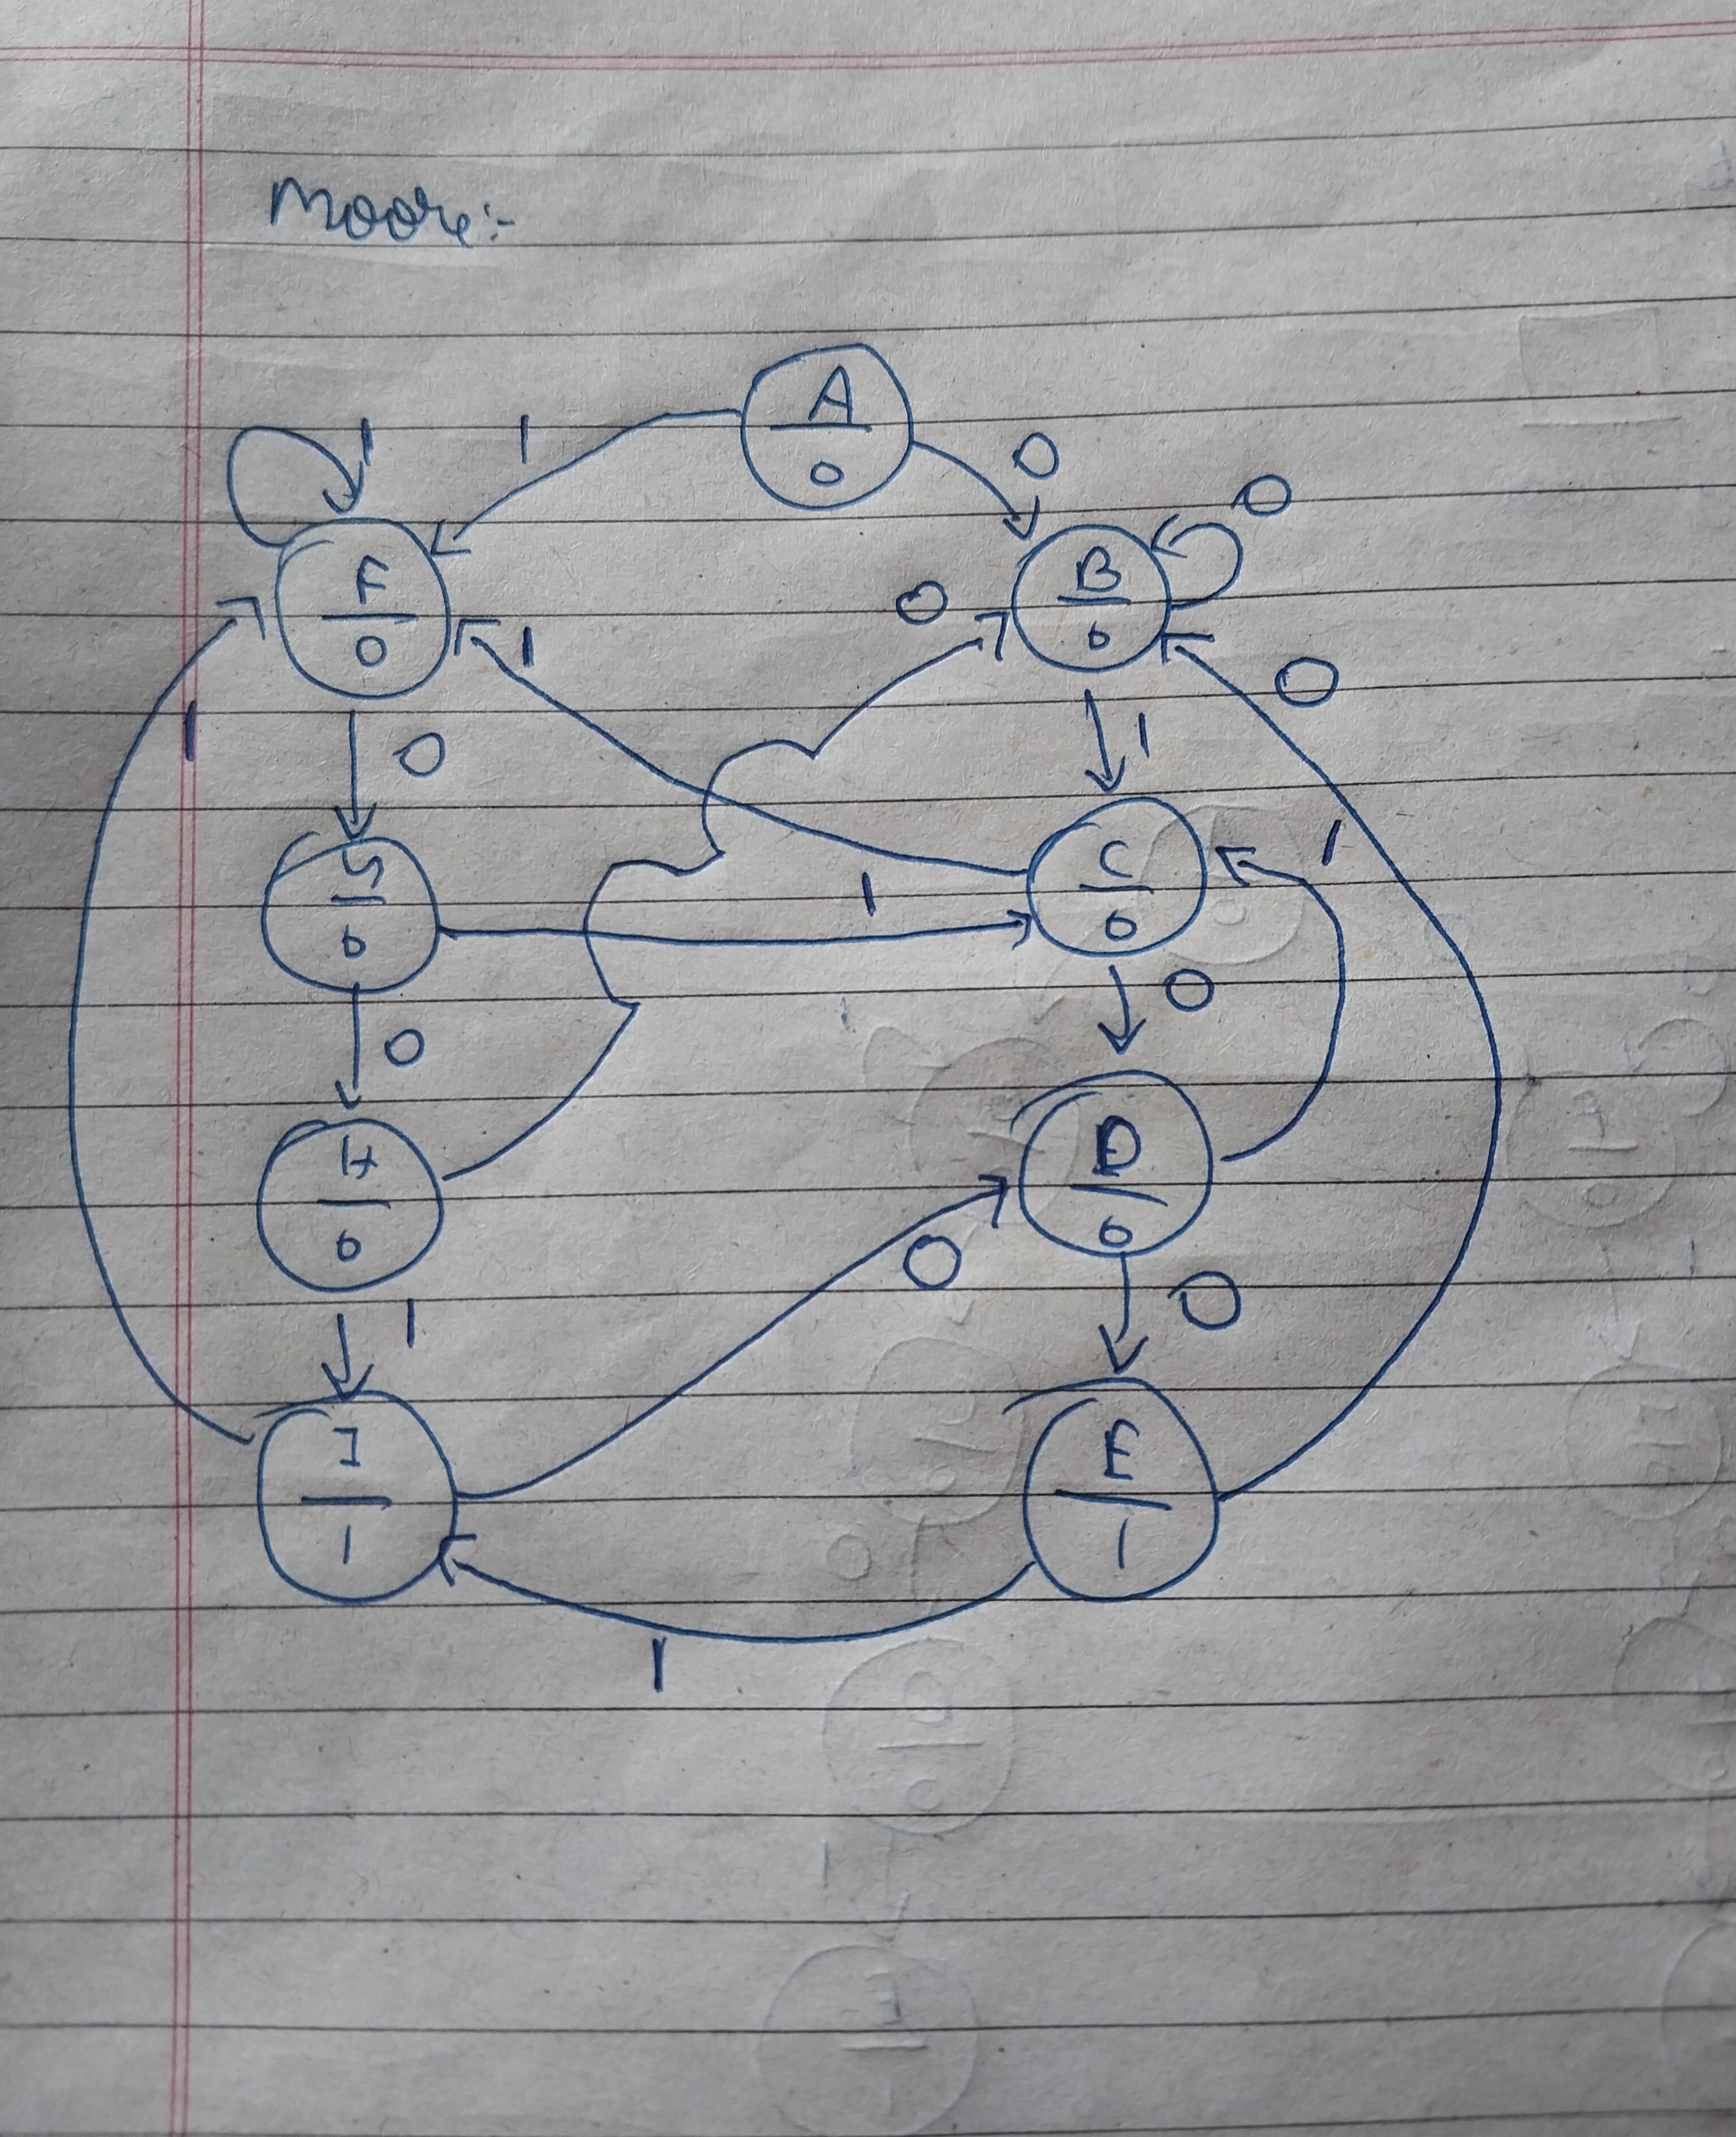 Moore:-
A
0
1
1
0
0
F
0
B
0
0
1
0
1
0
1
1
G
0
C
0
1
0
0
H
0
D
0
0
1
0
I
1
E
1
1